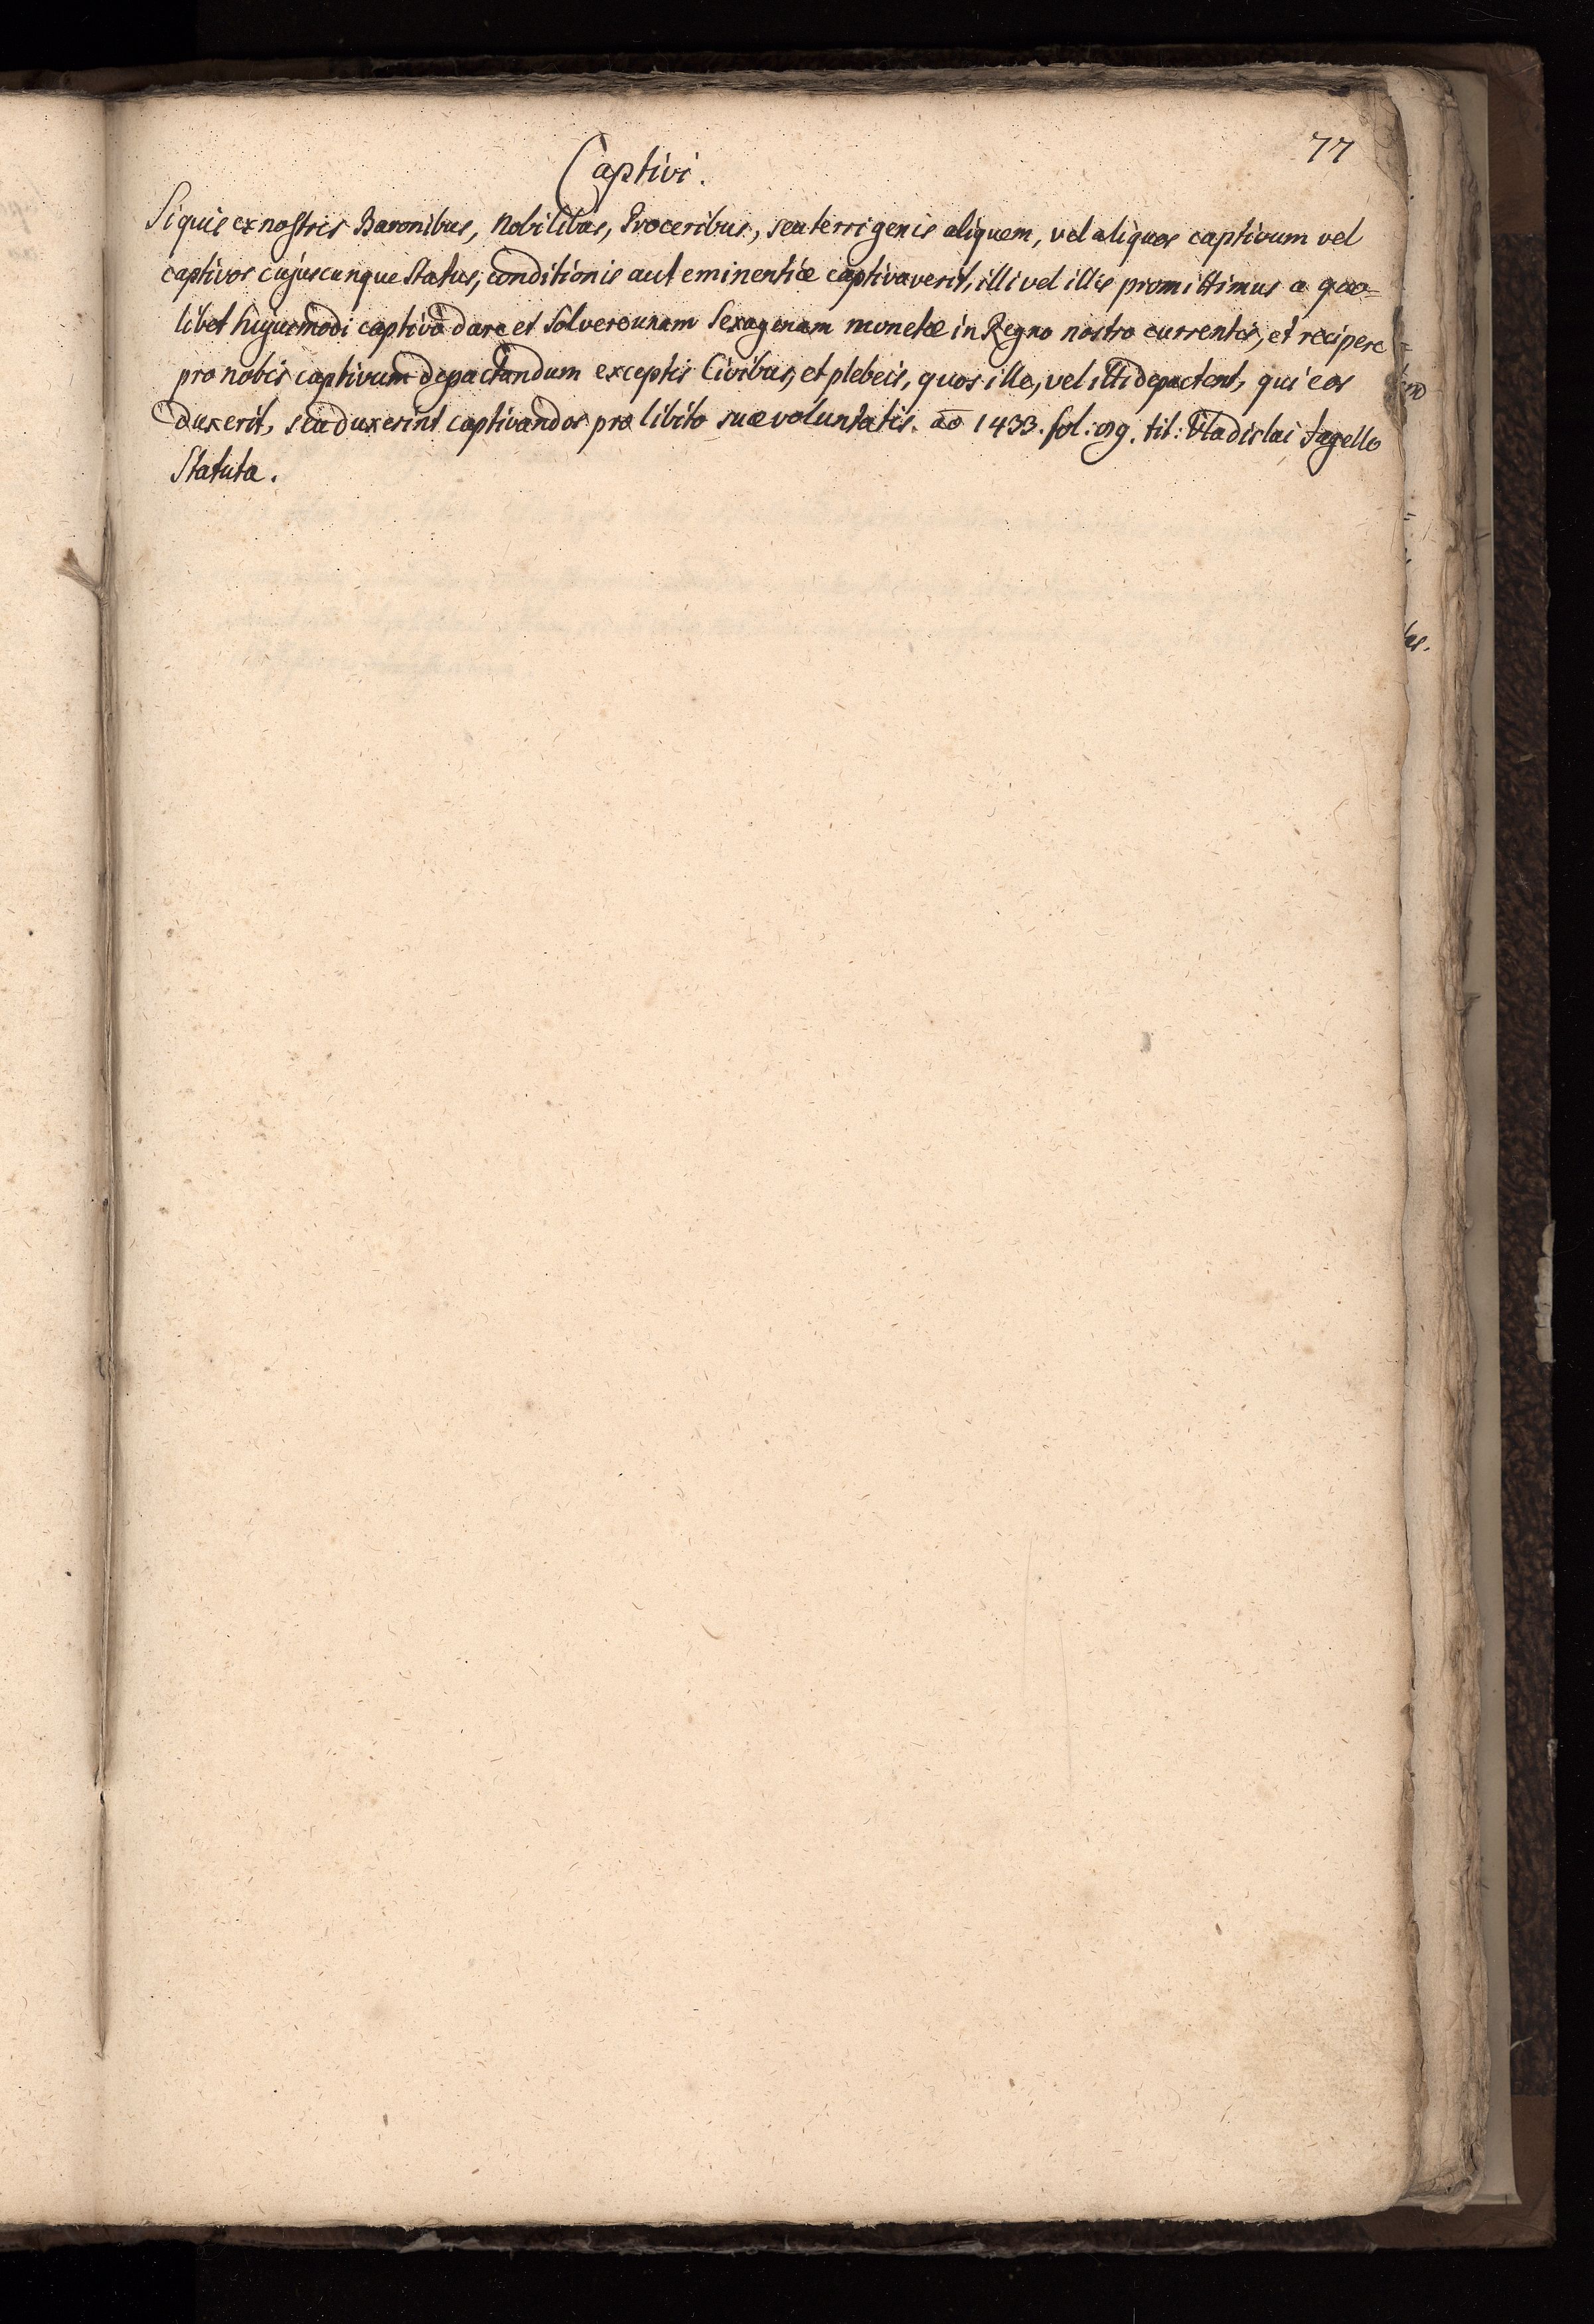 77
Captivi.
Siquis ex nostris Baronibus, Nobilibus, Proceribus, seu terrigenis aliquem, vel aliquos captivum vel
captivos cujuscunque Status, conditionis aut eminentiæ captivaverit, illi vel illis promittimus a quo=
libet hujusmodi captivo dare et Solvere unam Sexagenam monetæ in Regno nostro currentis, et recipere
pro nobis captivum depactandum exceptis Civibus, et plebeis, quos ille, vel illi depactent, qui eos
duxerit, seu duxerint captivandos pro libito suæ voluntatis. ao 1433. fol: tit: Vladislai Jagello
Statuta.